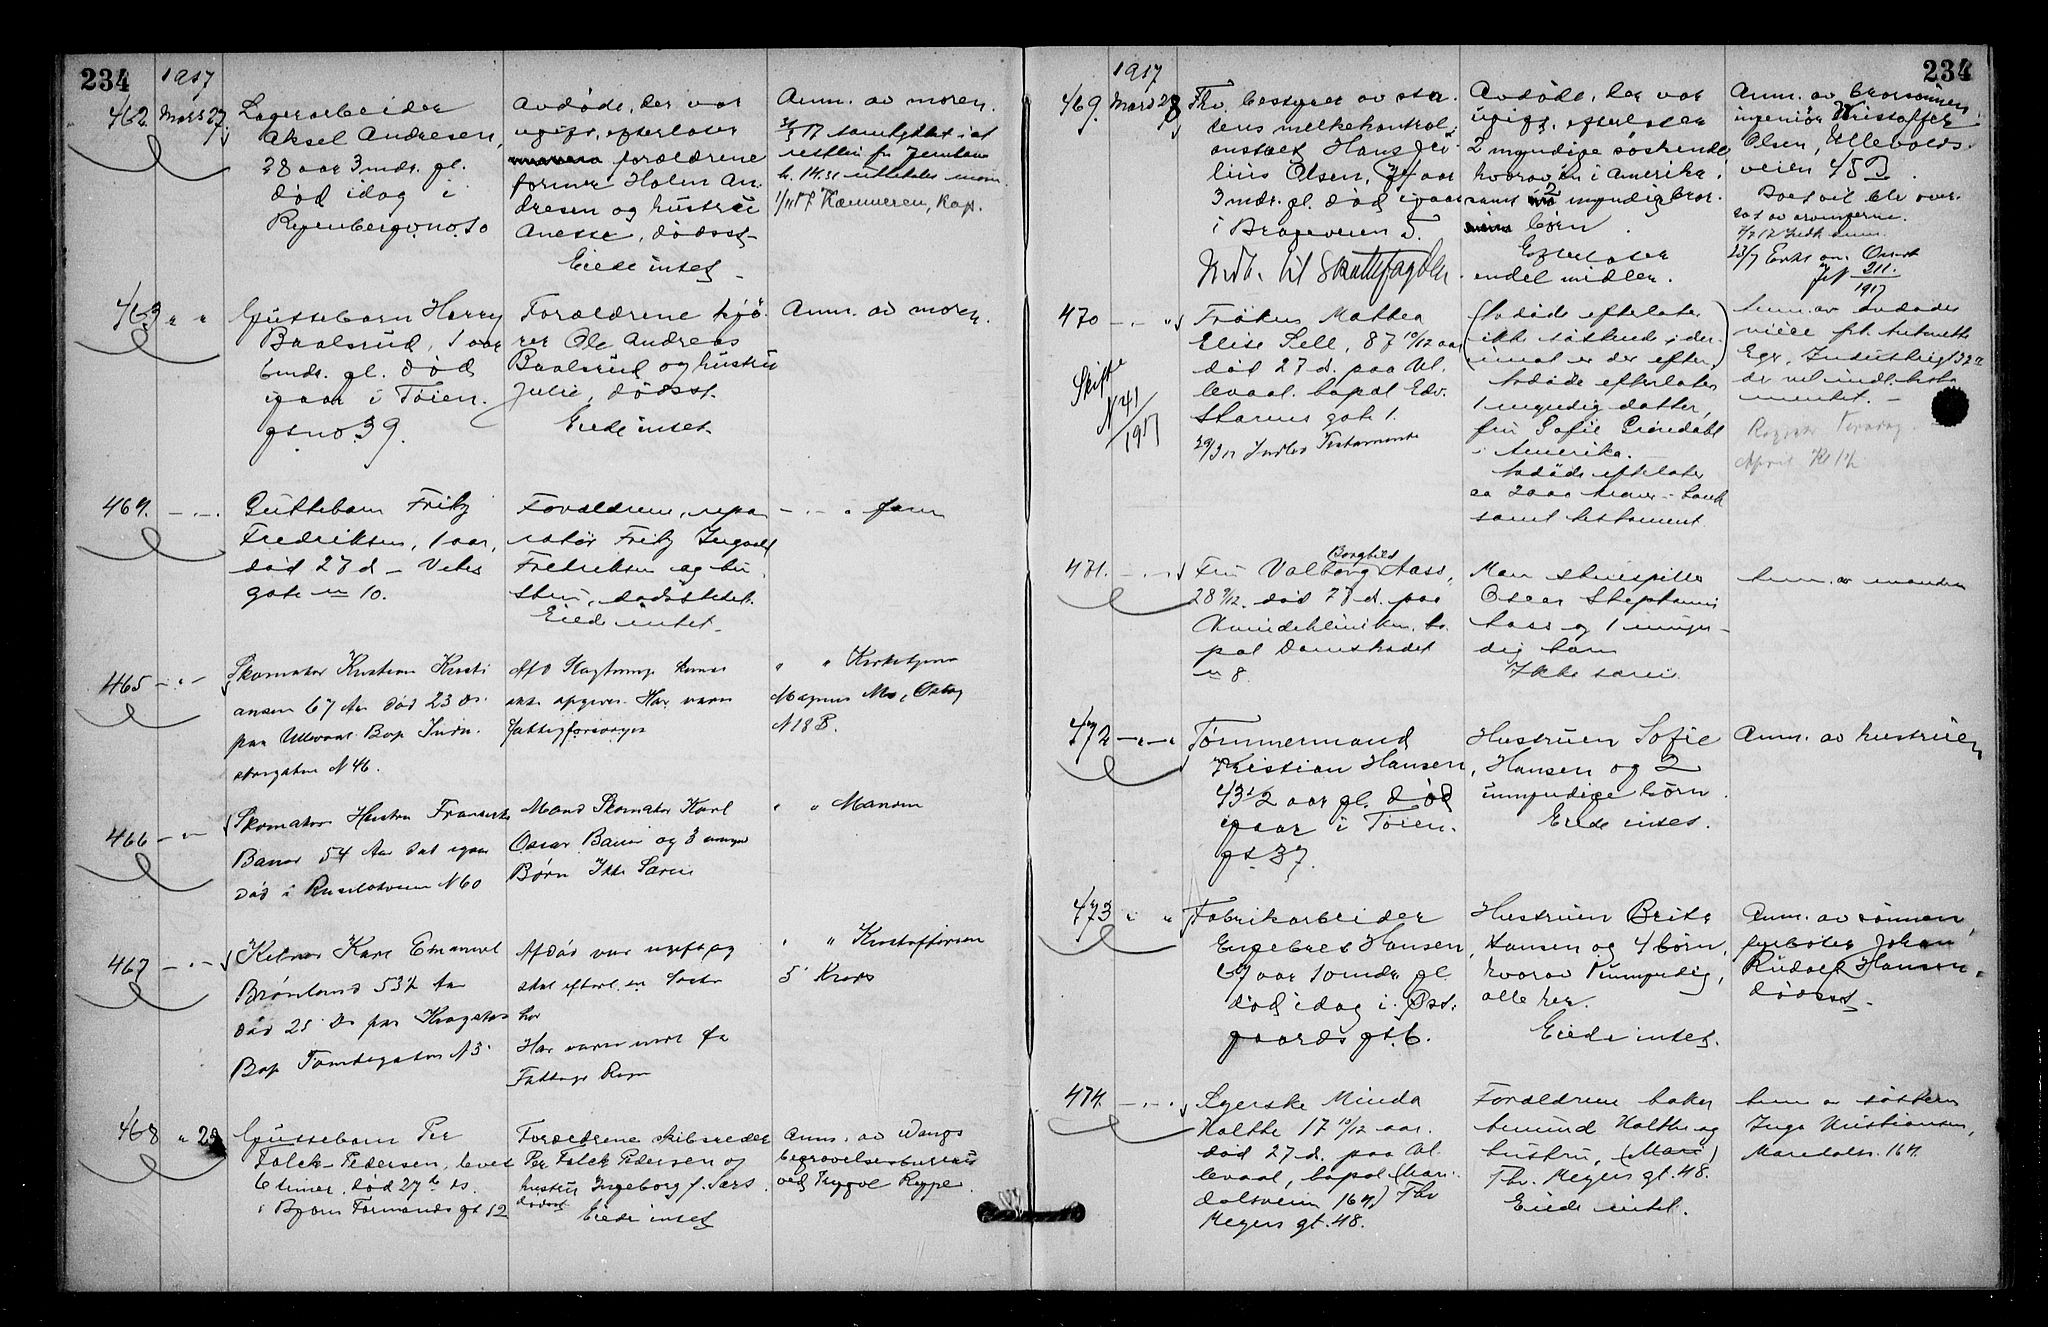 234
1917
462. Mars 27
Lagerarbeider
Aksel Andresen,
28 aar 3 mdr. gl.
død idag i
Rypenberggt. no. 10
Avdøde, der var
ugift, efterlater
forældrene
former Holm An-
dresen og hustru
Anette, dødsst.
Eiede intet
Anm. av moren.
Kæmneren, Kap.
463 " "
Guttebarn Harry
Baalsrud, 1 aar
6 mdr. gl. død
igaar i Tøien-
gt. no 39.
Forældrene kjø-
rer Ole Andreas
Baalsrud og hustru
Julie, dødsst.
Eiede intet.
Anm. av moren.
464. - " -
Guttebarn Fritz
Fredriksen, 1 aar,
død 27 d. - Vibes
gate no 10.
Forældrene, repa-
ratør Fritz Ingvald
Fredriksen og hu-
stru, dødsstedet.
Eiede intet.
- " - " faren
465 - " -
Skomaker Kristian Kristi
ansen 67 Aar død 23 ds.
paa Ullevaal Bop Indu-
strigaten N 46.
Afd Slægtninge kunne
ikke opgives. Har været
fattigforsørget
" " Kirketjener
Magnus Mo, Oslog
N 18 B.
466 - " -
Skomaker Hustru Franciska
Banér 54 Aar død igaar
død i Ruseløkveien N 60
Mand Skomaker Karl
Oscar Banér og 3 umynd
Børn Ikke Særeie
" " Manden
467 - " -
Kelner Karl Emanuel
Brønlund 53 ½ Aar
død 25 Ds paa Krogstøtten
Bop Tomtegaten N 5
Afdød var ugift og
skal efterl. en Søster
her
Har været noet fra
Fattigv. Kr.
" " Kristoffersen
468 " 28
Guttebarn Per
Falck-Pedersen, levet
6 timer, død 27de ds.
i Bjørn Farmands gt 12
Forældrene skibsreder
Per Falck Pedersen og
hustru Ingeborg f. Sars.
dødsst
Eiede intet
Anm. av Wangs
begravelsesbureau
ved Trygve Rype.
234
1917
469. Mars 28
Fhv. bestyrer av sta-
tens melkekontrol-
anstalt Hans Ju-
lius Olsen, 74 aar
3 mdr. gl. død igaar
i Brageveien 5.
Medd. til Skattefogden.
Avdøde, der var
ugift, efterlater
2 myndige søskende
hvorav en i Amerika,
samt 2 myndige bror-
børn.
Efterlater
endel midler.
Anm. av brorsønnen
ingeniør Kristoffer
Olsen, Ullevolds-
veien 45 B.
Boet vil bli over-
tat av arvingerne.
211
1917
470 - " - "
Skifte
N 41
1917
Frøken Mathea
Elise Sell, 87 10/12 aar
død 27 d. paa Ul-
levaal. bopal Edv.
Storms gate 1.
29/3 17 Indlev Testamente
(Avdøde efterlater
ikke søskende, der-
imot er der efter)
Avdøde efterlater
1 myndig datter,
fru Sofie Grøndahl
i Amerika.
Avdøde efterlater
ca 2000 kroner i bank
samt testament.
Anm. av avdødes
niece frk. Antonette
Egr, Industrigt 32
der vil indl. testa-
mentet. -
April Kl 12
471. - " -
Fru Valborg Borghild Aass,
28 9/12. død 27 d. paa
Kvindekliniken. bo-
pal Damstrædet
no 8.
Man skuespiller
Oscar Stephanus
Aass og 1 umyn-
dig barn
Ikke særeie.
Anm. av manden
472 - " -
Tømmermand
Kristian Hansen,
43 ½ aar gl. død
igaar i Tøien-
gt. 37.
Hustruen Sofie
Hansen og 2
umyndige børn.
Eiede intet.
Anm. av hustruen
473 " "
Fabrikarbeider
Engebret Hansen,
69 aar 10 mdr. gl.
død idag i Øst-
gaards gt. 6.
Hustruen Brite
Hansen og 4 børn,
hvorav 1 umyndig,
alle her.
Eiede intet.
Anm. av sønnen,
fyrbøter Johan
Rudolf Hansen,
dødsst.
474. - " -
Syerske Minda
Holthe 17 10/12 aar.
død 27 d. paa Ul-
levaal, bopal (Mari-
dalsveien 164) Thv
Meyers gt. 48.
Forældrene baker
Amund Holthe og
hustru, (Mari)
Thv. Meyers gt. 48.
Eiede intet.
Anm av søsteren
Inga Kristiansen,
Maridalsv. 164.